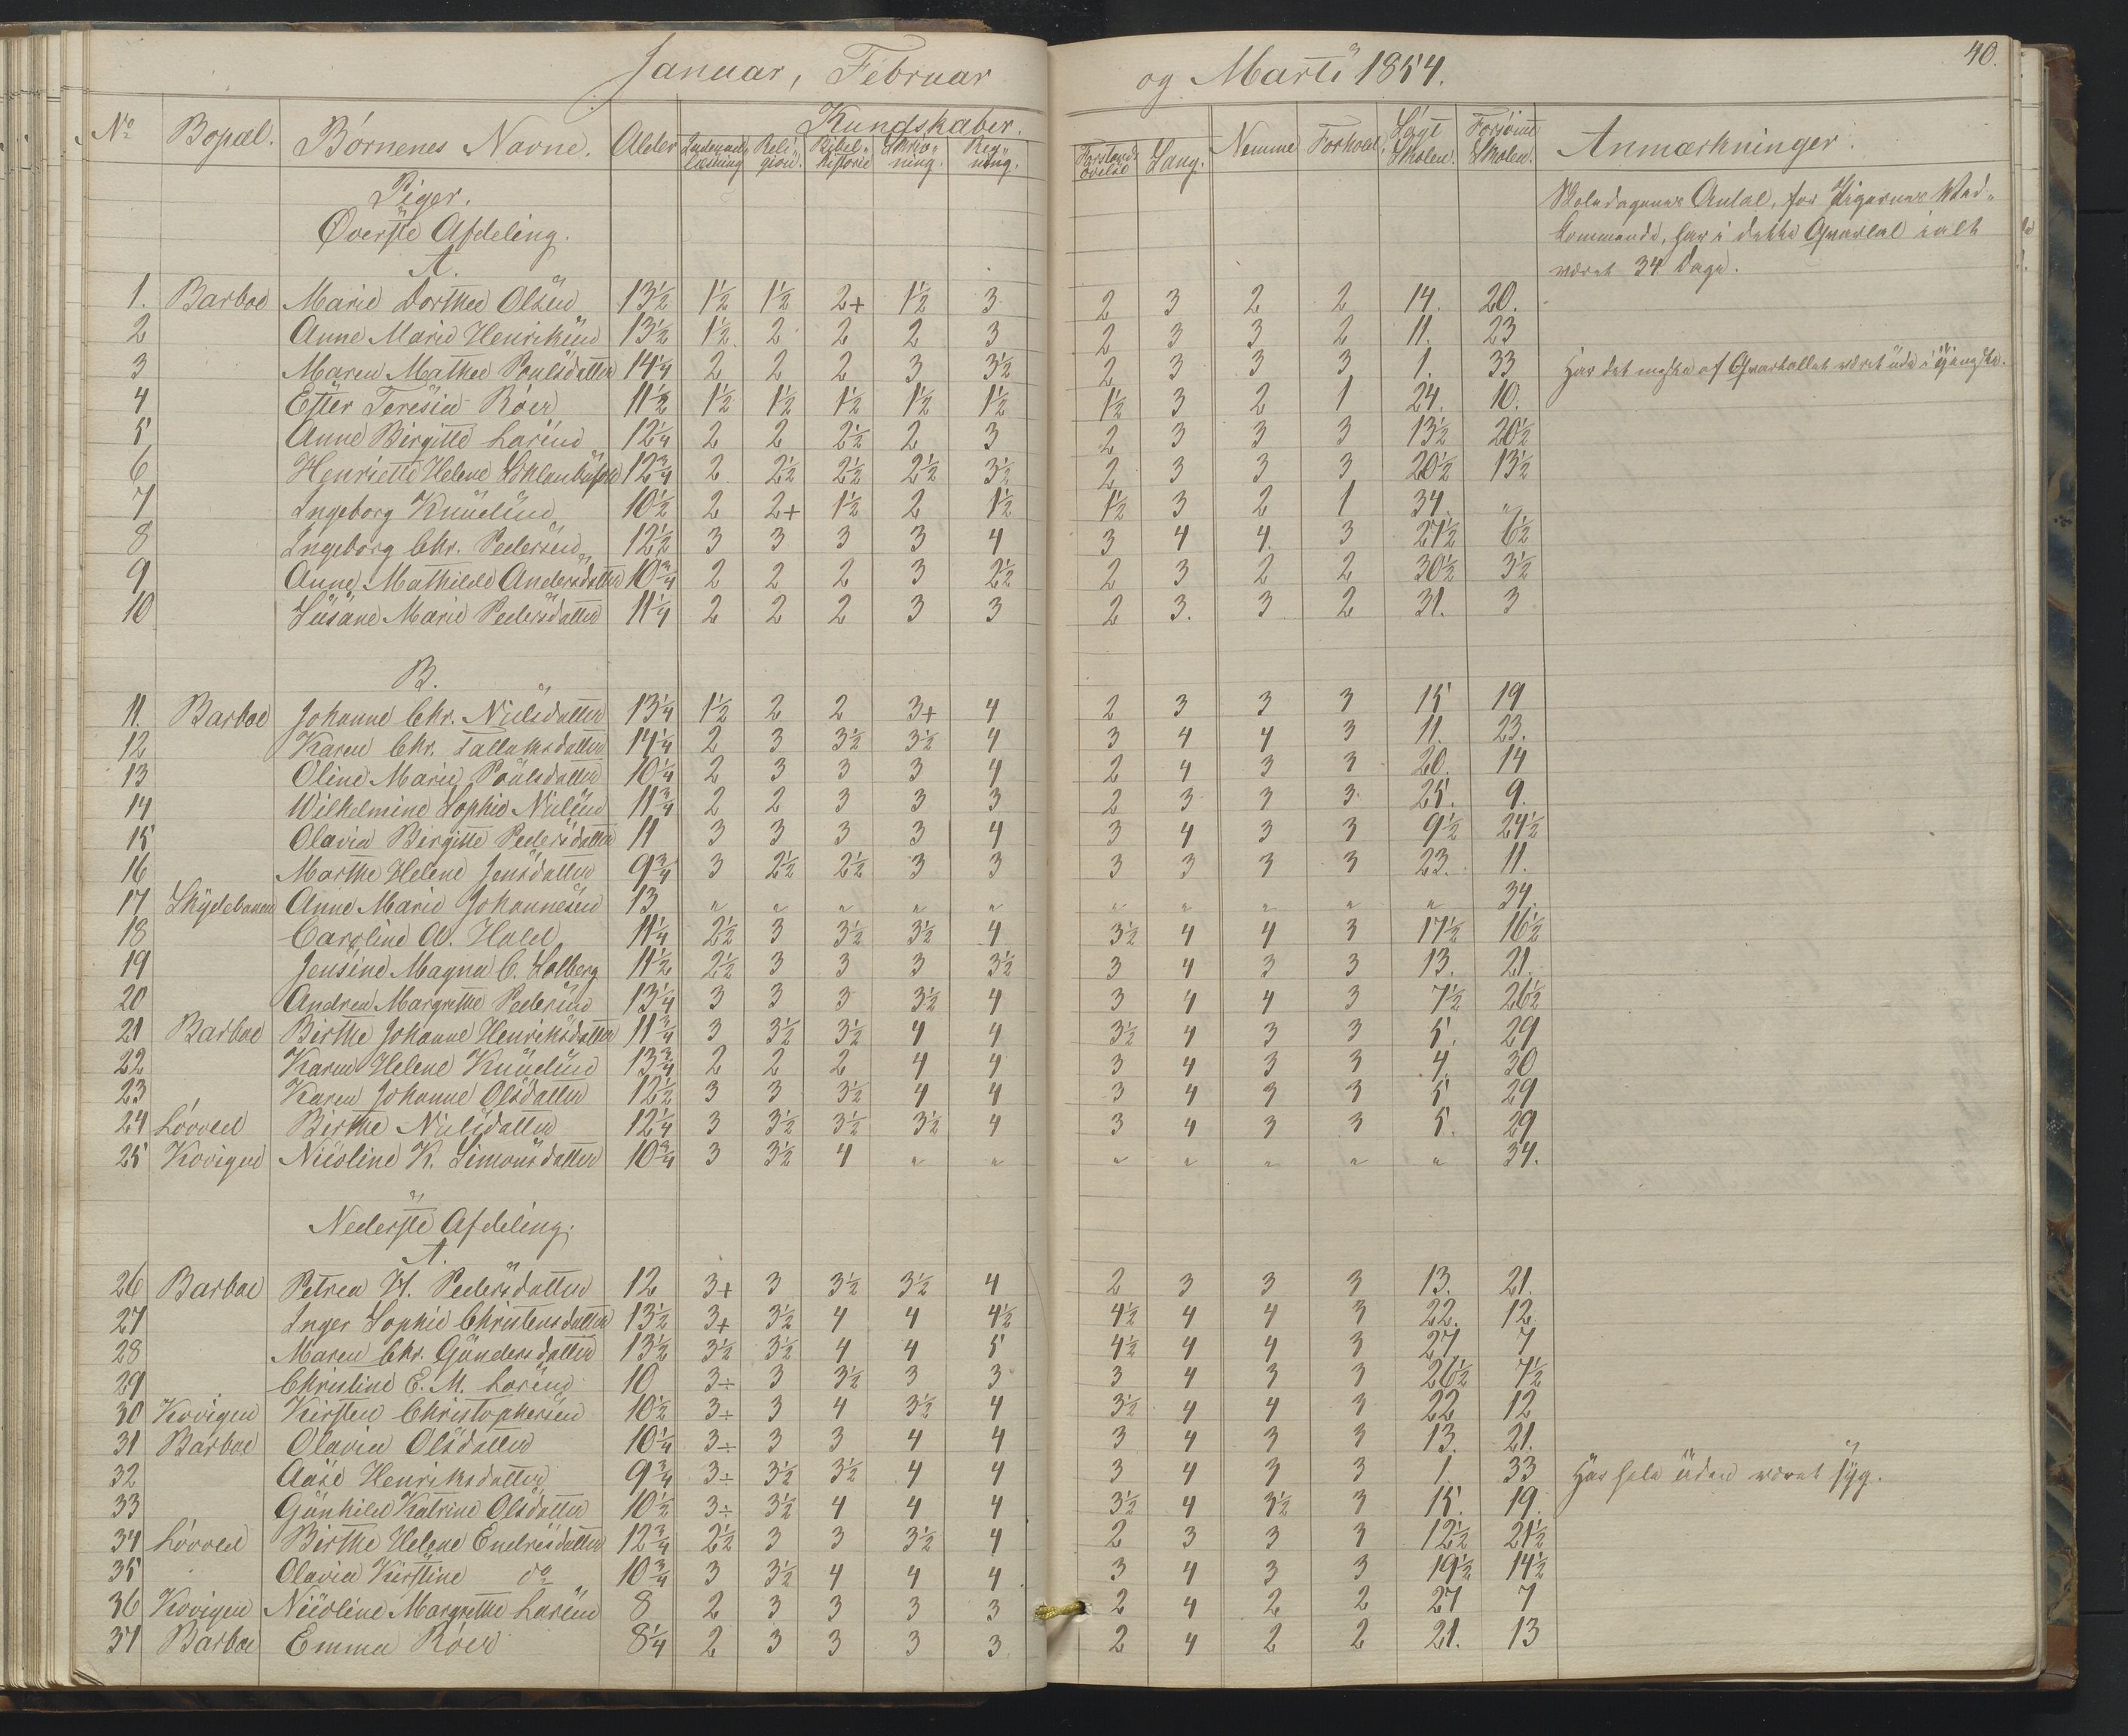 Januar, Februar og Marts 1854. 40.
No Bopæl. Børnenes Navne. Alder Kundskaber. Nemme Forhold. Søgt Skolen. Forsømt Skolen. Anmærkninger.
Indenads Læsning Reli-gion. Bibel-historie Skriv-ning. Reg-ning. Forstands øvelse Sang.
Piger.
Øverste Afdeling.
A.
Skoledagenes Antal, for Pigernes Ved-
kommende, har i dette Qvartal ialt
været 34 Dage.
1. Barboe Marie Dorthea Olsen 13½ 1½ 1½ 2+ 1½ 3 2 3 2 2 14. 20.
2 Anne Marie Henriksen 13½ 1½ 2 2 2 3 2 3 3 2 11. 23
3 Maren Mathea Poulsdatter 14¼ 2 2 2 3 3½ 2 3 3 3 1. 33 Har det meste af Qvartallet været ude i
4 Ester Teresia Röer 11½ 1½ 1½ 1½ 1½ 1½ 1½ 3 2 1 24. 10.
5 Anne Birgitte Larsen 12¼ 2 2 2½ 2 3 2 3 3 3 13½ 20½
6 Henriette Helene 12¾ 2 2½ 2½ 2½ 3½ 2 3 3 3 20½ 13½
7 Ingeborg Knudsen 10½ 2 2+ 1½ 2 1½ 1½ 3 2 1 34. "
8 Ingeborg Chr. Pedersen 12½ 3 3 3 3 4 3 4 4. 3 27½ 6½
9 Anne Mathilde Andersdatter 10¾ 2 2 2 3 2½ 2 3 2 2 30½ 3½
10 Susane Marie Pedersdatter 11¼ 2 2 2 3 3 2 3. 3 2 31. 3
B.
11. Barboe Johanne Chr. Nielsdatter 13¼ 1½ 2 2 3+ 4 2 3 3 3 15 19
12 Karen Chr. Tallaksdatter 14¼ 2 3 3½ 3½ 4 3 4 4 3 11. 23.
13 Oline Marie Poulsdatter 10¼ 2 3 3 3 4 2 4 3 3 20. 14
14 Wilhelmine Sophie Nielsen 11¾ 2 2 3 3 3 2 3 3 3. 25. 9.
15 Olavia Birgitte Pedersdatter 11 3 3 3 3 4 3 4 3 3 9½ 24½
16 Marthe Helene Jensdatter 9¾ 3 2½ 2½ 3 3 3 3 3 3 23. 11.
17 Skydebanen Anne Marie Johannesen 13 " " " " " " " " " " 34.
18 Caroline A. Hald 11¼ 2½ 3 3½ 3½ 4 3½ 4 4 3 17½ 16½
19 Jensine Magna C. Solberg 11½ 2½ 3 3 3 3½ 3 4 3 3 13. 21.
20 Andrea Margrethe Pedersen 13¼ 3 3 3 3½ 4 3 4 4 3 7½ 26½
21 Barboe Birthe Johanne Henriksdatter 11¾ 3 3½ 3½ 4 4 3½ 4 3 3 5. 29
22 Karen Helene Knudsen 13¾ 2 2 2 4 4 3 4 3 3 4. 30
23 Karen Johanne Olsdatter 12½ 3 3 3½ 4 4 3 4 3 3 5 29
24 Løvved Birthe Nielsdatter 12¼ 3 3½ 3½ 3½ 4 3 4 3 3 5. 29
25 Kovigen Nicoline K. Simonsdatter 10¾ 3 3½ 4 " " " " " " " 34.
Nederste Afdeling.
A.
26 Barboe Petrea H. Pedersdatter 12 3+ 3 3½ 3½ 4 2 3 3 3 13. 21.
27 Inger Sophie Christensdatter 13½ 3+ 3½ 4 4 4½ 4½ 4 4 3 22. 12
28 Maren Chr. Gundersdatter 13½ 3½ 3½ 4 4 5 4½ 4 4 3 27 7
29 Christine E. M. Larsen 10 3÷ 3 3½ 3 3 3 4 3 3 26½ 7½
30 Kovigen Kirsten Christophersen 10½ 3÷ 3 4 3½ 4 3½ 4 4 3 22 12
31 Barboe Olavia Olsdatter 10¼ 3÷ 3 3 4 4 3 4 3 3 13. 21.
32 Aase Henriksdatter 9¾ 3÷ 3½ 3½ 4 4 3 4 3 3 1. 33 Har hele Tiden været syg.
33 Gunhild Katrine Olsdatter 10½ 3÷ 3½ 4 4 4 3½ 4 3½ 3 15. 19.
34 Løvved Birthe Helene Endresdatter 12¾ 2½ 3 3 3½ 4 2 3 3 3 12½ 21½
35 Olavia Kirstine do 10¾ 3 3½ 4 4 4 3 4 3 3 19½ 14½
36 Kovigen Nicoline Margrethe Larsen 8 2 3 3 3 3 2 4 2 2 27 7
37 Barboe Emma Röer 8¼ 2 3 3 3 3 2 4 2 2 21. 13